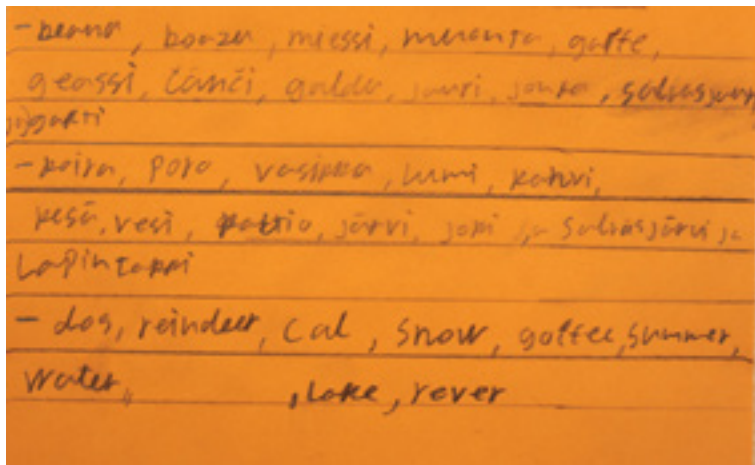 - beana, boazu, miessi, muohta, gaffe,
geassi, čáhci, galdo, jauri, jouka, salvasjauri
ja) gakti
- koira, poro, vasikka, lumi, kahvi,
kesä, vesi, kaltio, järvi, joki ja salvasjärvi ja
Lapintakki
- dog, reindeer, cal, snow, goffee, summer,
water, , lake, rever